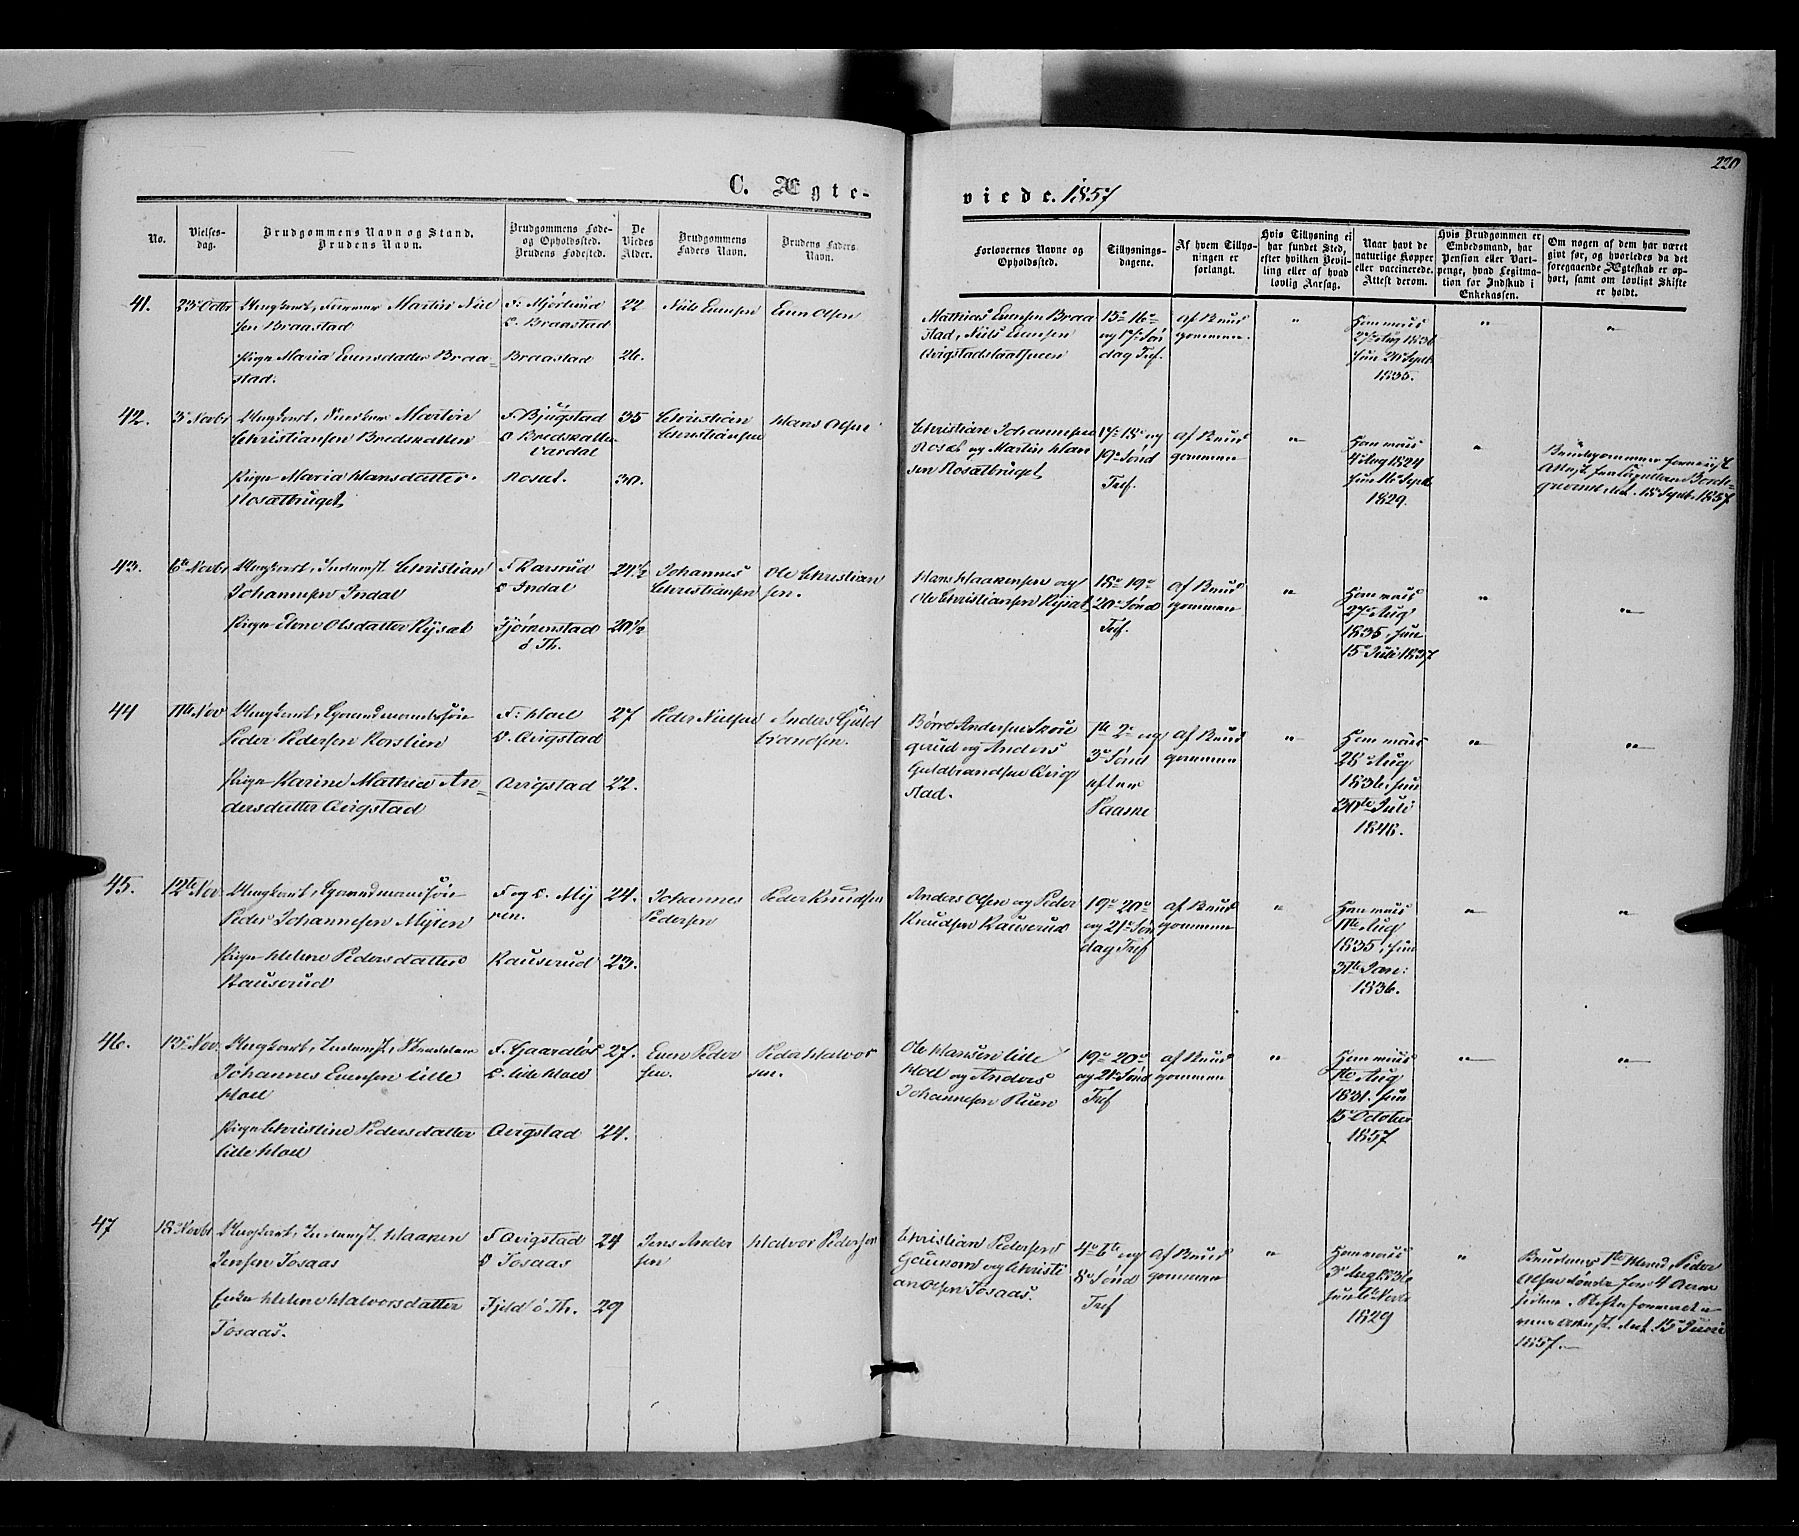 220
C. Ægte-
viede. 1857
No.
Vielses-
dag.
Brudgommens Navn og Stand.
Brudens Navn.
Brudgommens Føde-
og Opholdssted.
Brudens Fødested.
De
Viedes
Alder.
Brudgommens
Faders Navn.
Brudens Faders
Navn.
Forlovernes Navne og
Opholdssted.
Tillysnings-
dagene.
Af hvem Tillys-
ningen er
forlangt.
Hvis Tillysning ei
har fundet Sted,
efter hvilken Bevil-
ling eller af hvad
lovlig Aarsag.
Naar havt de
naturlige Kopper
eller vaccinerede.
Attest derom.
Hvis Brudgommen er
Embedsmand, har
Pension eller Vart-
penge, hvad Legitima-
tion for Indskud i
Enkekassen.
Om nogen af dem har været
givt før, og hvorledes da det
foregaaende Ægteskab er op-
hørt, samt om lovligt Skifte
er holdt.
41.
23 Octbr
Ungkarl, Martin Niel
sen Braastad
F. Mjørlund
O. Braastad
22
Niels Evensen
Even Olsen
Mathias Evensen Braa
stad, Niels Evensen
15de 16de
og 17de Søn
dag Tref.
af Brud
gommen.
"
Ham
27 Aug 1836
hun 20 Septb
1835.
"
"
Pige Maria Evensdatter Braa-
stad.
Braastad
26.
42.
3 Novbr
Ungkarl, Martin
Christiansen Bredskallen
F. Bjugstad
O Bredskallen
Vardal
35
Christian
Christiansen
Hans Olsen
Christian Johannesen
Rosæt og Martin Han
sen Rosætbruget
17de 18de og
19de Sønd
Tref.
af Brud
gommen
"
Ham
4 Aug 1824
hun 16 Septb
1829.
"
Brudgommen
Attest fra
15 Septb. 1857
Pige Maria Hansdatter
Rosætbruget
Rosæt.
30.
43.
6te Novbr
Ungkarl, Inderst Christian
Johannesen Indal
F Karsrud
O Indal
24 1/2
Johannes
Christiansen
Ole Christian
sen.
Hans Haakensen og
Ole Christiansen Rysæt
18de 19de
20de Sønd
Tref.
af Brud
gommen
"
Ham
27 Aug
1835, hun
15de Juli 1837
"
"
Pige Olsdatter Rysæt
Fjørkenstad
ø Th.
20 1/2
44
11te Nov
Ungkarl, Gaardmandssøn
Peder Pedersen Korslien
F. Hoel
O. Avigstad
27
Peder Nielsen
Anders Guld
brandsen.
Børre Andersen
og Anders
Guldbrandsen Avig
stad.
1ste 2de og
3de Sønd
efter
Paaske
af Brud
gommen
"
Ham
28de Aug
1836, hun
30te Juli
1848.
"
"
Pige Karine Mathia An-
dersdatter Avigstad
Avigstad
22.
45.
12te Nov.
Ungkarl, Gaardmandssøn
Peder Johannesen Myren
F og O. My
ren.
24.
Johannes
Pedersen
Peder Knudsen
Anders Olsen og Peder
Knudsen Rauserud
19de 20de
og 21de Søn
dag Tref
af Brud
gommen
"
Ham
11te Aug
1835, hun
31te Jan:
1836.
"
"
Pige Helene Pedersdatter
Rauserud
Rauserud
23.
46.
13de Nov.
Ungkarl, Inderst,
Johannes Evensen Lille
Hoel
F. Gaardløs
O. Lille Hoel
27.
Even Peder
sen.
Peder Halvor
sen.
Ole Hansen Lille
Hoel og Anders
Johannesen Ruen
19de 20de
og 21de Sønd
Tref
af Brud
gommen
"
Ham
Aug
1831. hun
15 October
1857
"
"
Pige Christine Pedersdatter
Lille Hoel
Avigstad
24.
47
18 Novbr
Ungkarl, Inderst, Haaken
Jensen Tosaas
F Avigstad
O Tosaas
24
Jens Ander
sen
Halvor Pedersen
Christian Pedersen
og Christi
an Olsen Tosaas.
4de 6te og
8de Sønd
Tref
af Brud
gommen
"
Ham
3 Aug 1836
hun Novbr
1829
"
Brudens 1ste Mand, Peder
Olsen døde for 4 Aar
siden. Skifte
Attest. dat. 15 Juni
1857.
Enke Helene Halvorsdatter
Tosaas.
Fjeld ø Th.
29